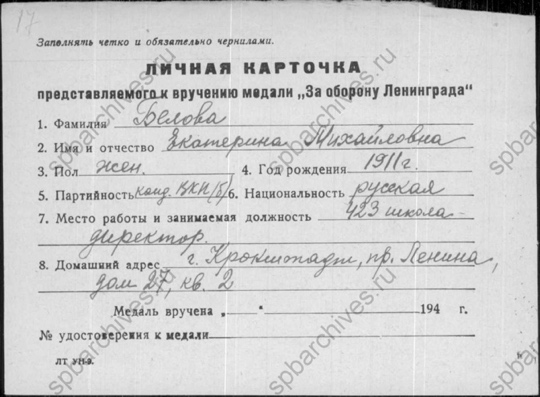 17
Заполнять четко и обязательно чернилами.
ЛИЧНАЯ КАРТОЧКА
представляемого к вручению медали „За оборону Ленинграда“
1. Фамилия Белова
2. Имя и отчество Екатерина Михайловна
3. Пол жен. 4. Год рождения 1911 г.
5. Партийность канд. ВКП/б/ 6. Национальность русская
7. Место работы и занимаемая должность 423 школа -
директор.
8. Домашний адрес г. Кронштадт, пр. Ленина,
дом 27, кв. 2
Медаль вручена „ “ 194 г.
№ удостоверения к медали
ЛТ УНЭ.
spbarchives.ru